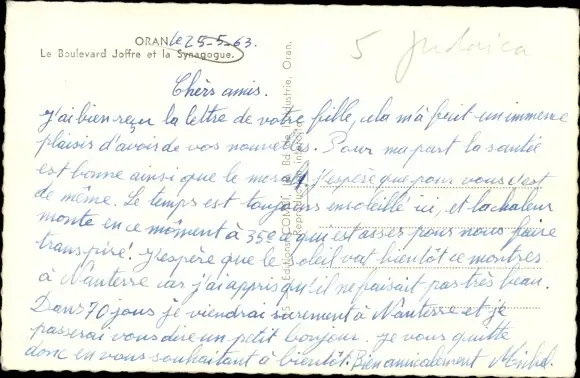 ORAN le 25-5-63.
Le Boulevard Joffre et la Synagogue.
5 Judaica
Chers amis.
J'ai bien reçu la lettre de votre fille, cela m'a fait un immense
plaisir d'avoir de vos nouvelles. Pour ma part la santé
est bonne ainsi que le moral, j'espère que pour vous c'est
de même. Le temps est toujours ensoleillé ici, et la chaleur
monte en ce moment à 35° ce qui est assez pour nous faire
transpiré! J'espère que le soleil vat bientôt ce montrer
à Nanterre car j'ai appris qu'il ne faisait pas très beau.
Dans 70 jours je viendrai surement à Nanterre et je
passerai vous dire un petit bonjour. Je vous quitte
donc en vous souhaitant à bientôt. Bien amicalement Michel.
Bd de l'Industrie, Oran.
Reproduction interdite